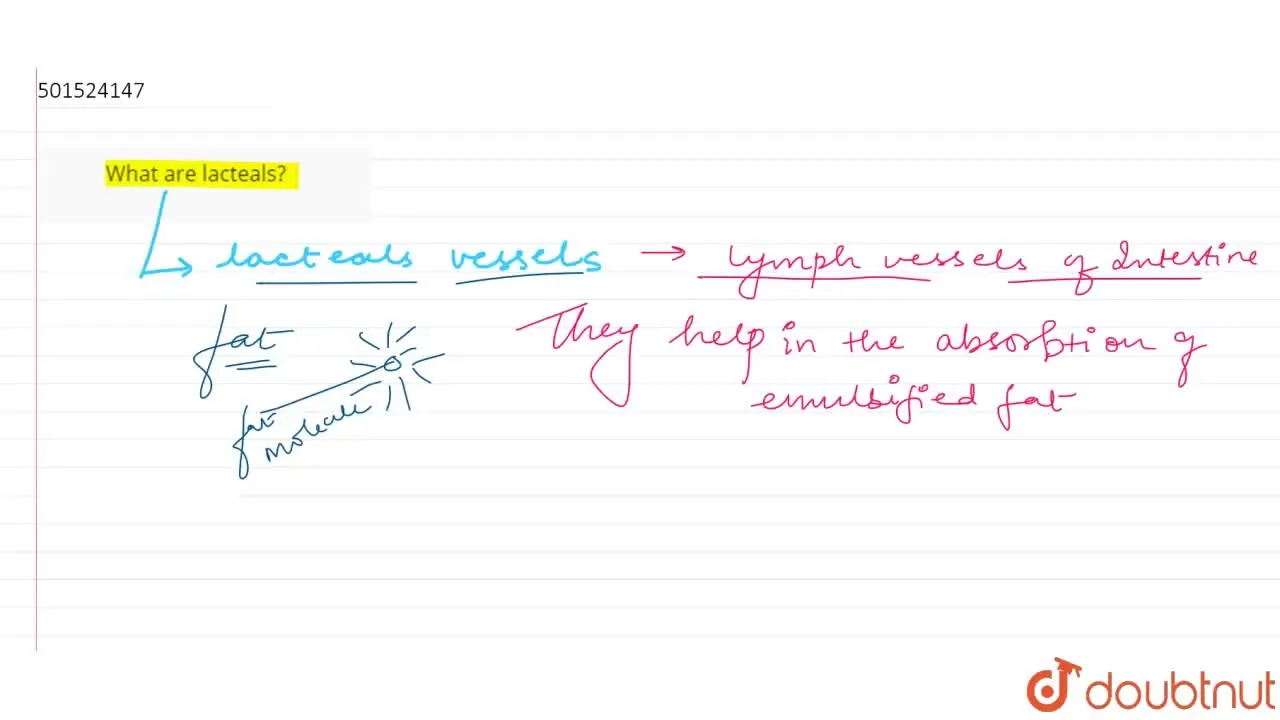 501524147
What are lacteals?
lacteals vessels → lymph vessels of Intestine
They help in the absorption of
emulsified fat
fat
fat
molecule
doubtnut